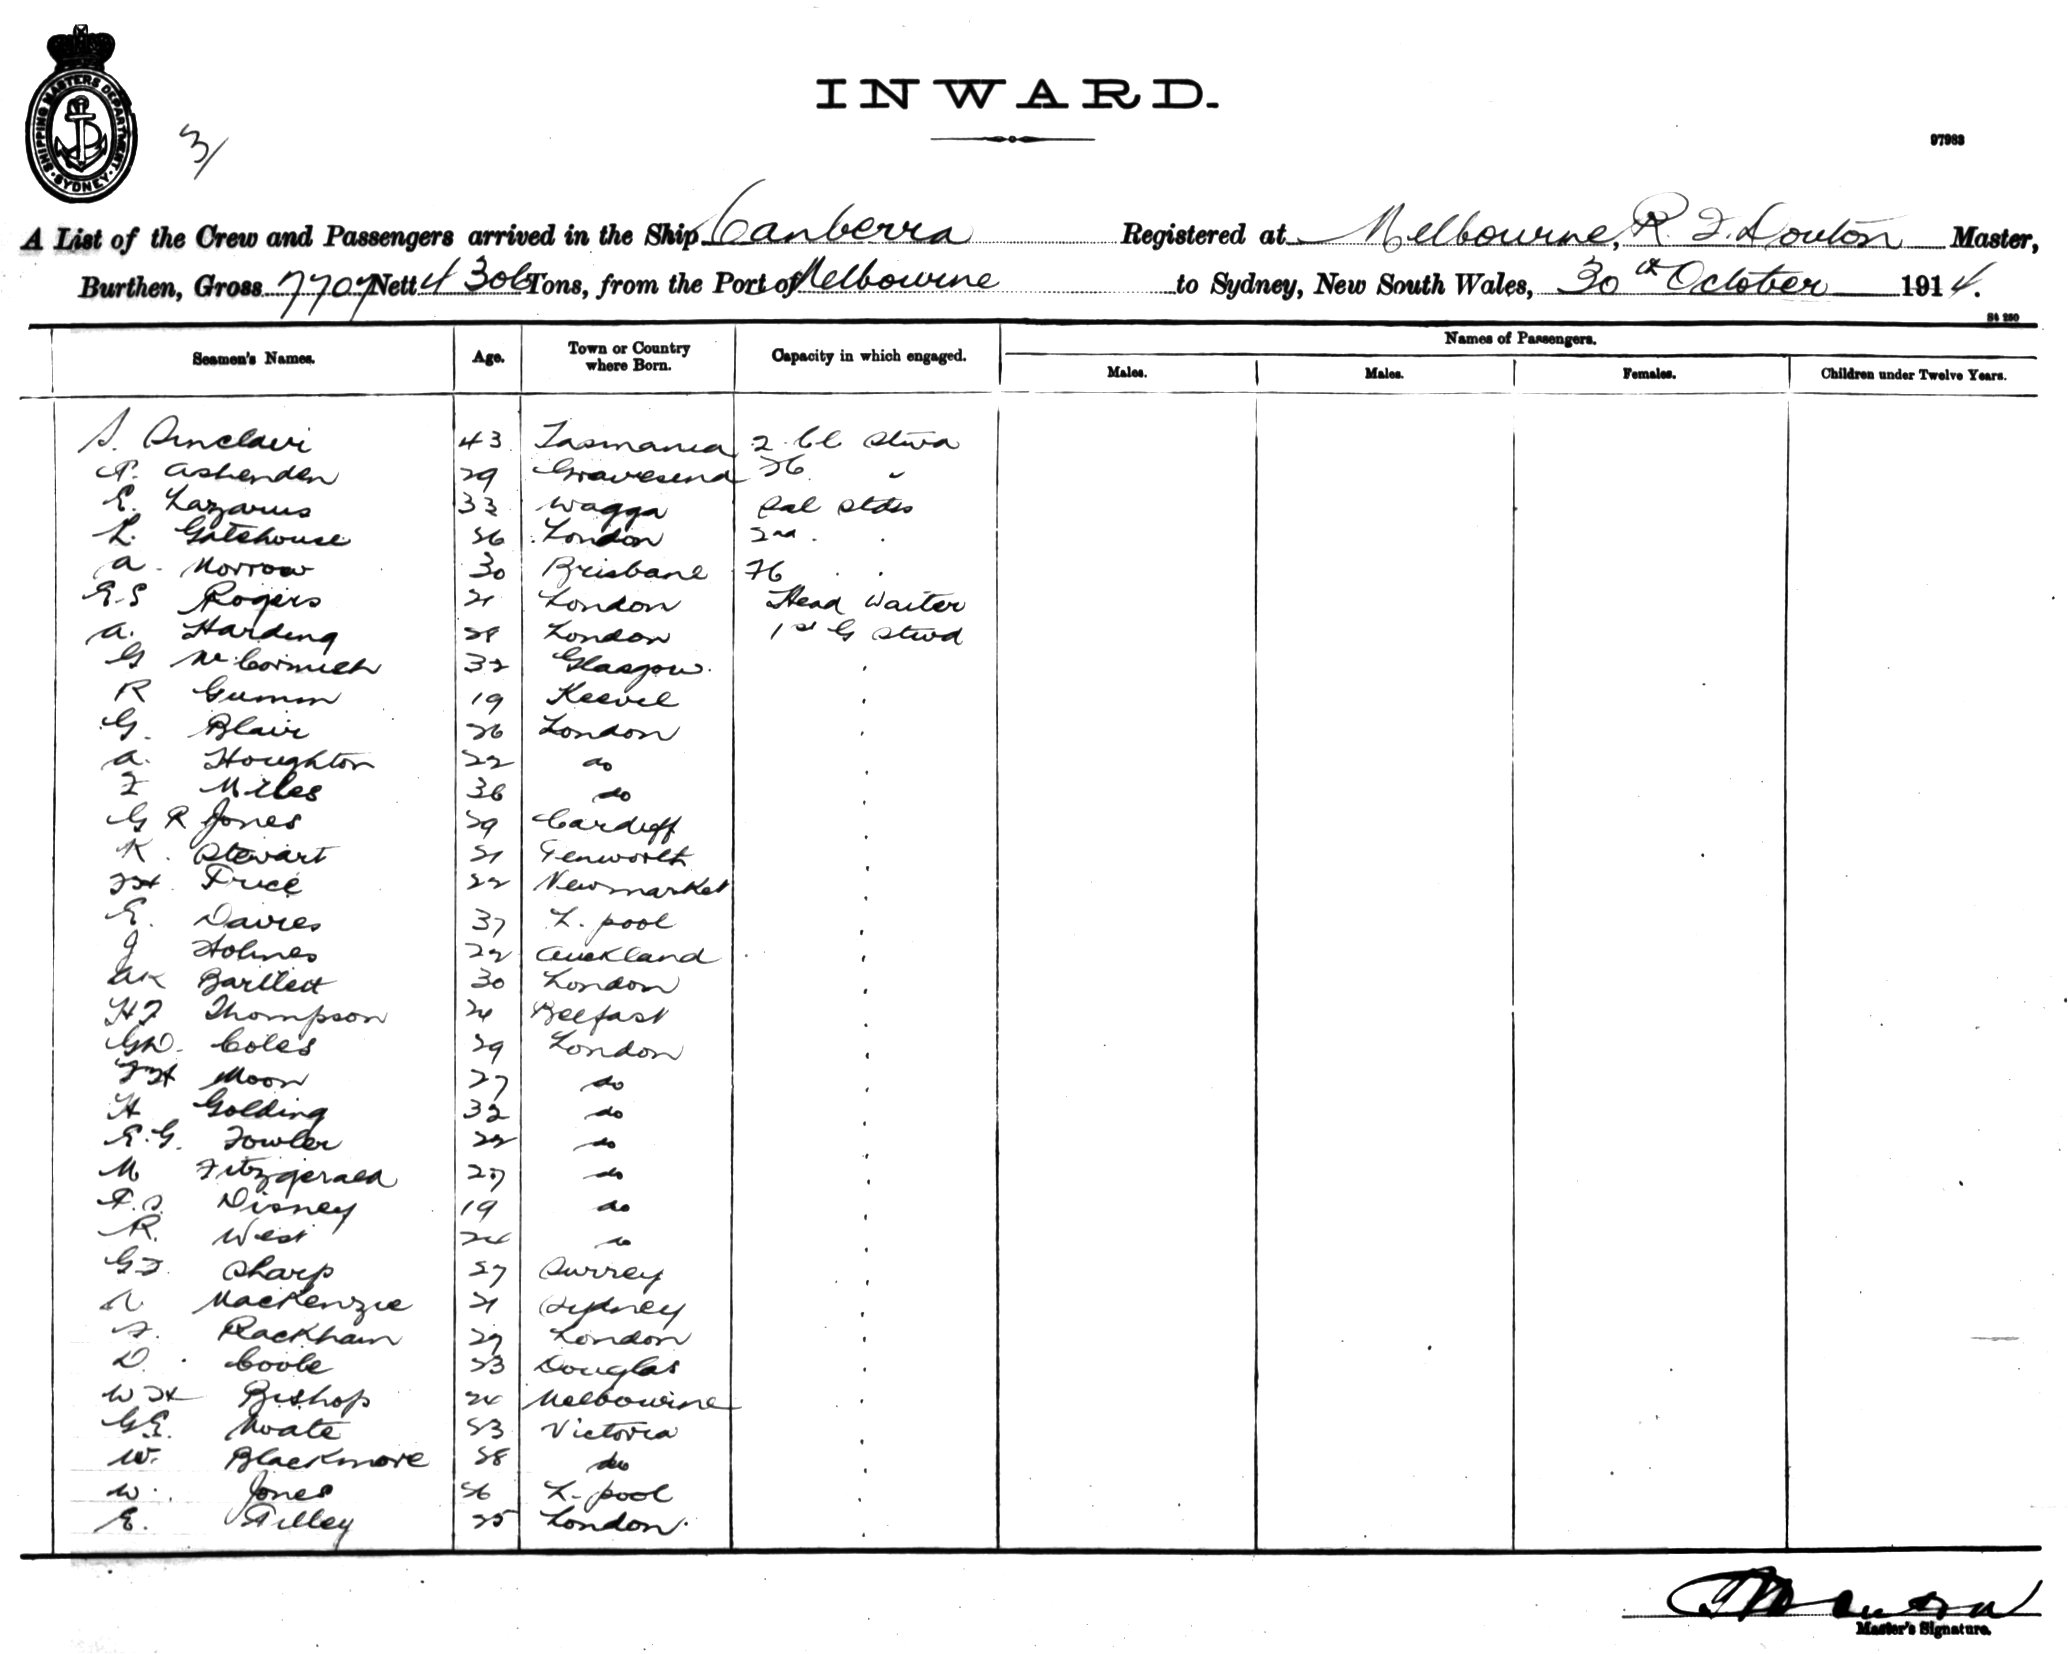 SHIPPING MASTERS DEPARTMENT · SYDNEY ·
3/
INWARD.
97983
A List of the Crew and Passengers arrived in the Ship Canberra Registered at Melbourne, R. J. Douton Master,
Burthen, Gross 7707 Nett 4306 Tons, from the Port of Melbourne to Sydney, New South Wales, 30th October 1914.
St 250
Names of Passengers.
Seamen's Names. Age. Town or Country where Born. Capacity in which engaged. Males. Males. Females. Children under Twelve Years.
S. Sinclair 43 Tasmania 2 Cl Stwd
A. Ashenden 29 Gravesend "
E. Lazarus 33 Wagga Sal Stdss
L. Gatehouse 26 London 2nd . .
A. Morrow 30 Brisbane . .
E.S Rogers 21 London Head Waiter
A. Harding 28 London 1st G Stwd
G McCormick 32 Glasgow .
R Gumm 19 Keevil .
G. Blair 26 London .
A. Houghton 22 do .
F Miles 36 do .
G R Jones 29 Cardiff .
K. Stewart 21 .
FH. Price 22 Newmarket .
E. Davies 37 L. pool .
J Holmes 22 Auckland .
AK Bartlett 30 London .
HF Thompson 24 Belfast .
GD. Coles 29 London .
FH Moon 27 do .
H Golding 32 do .
E.G. Fowler 22 do .
M Fitzgerald 27 do .
A.S. Disney 19 do .
R. West 24 do .
GF. Sharp 27 Surrey .
MacKenzie 21 Sydney .
F. Rackham 29 London .
D. Coole 23 Douglas .
WH Bishop 24 Melbourne .
G.E. Moate 23 Victoria .
W. Blackmore 28 do .
W. Jones 26 L. pool .
E. Tilley 25 London .
Master's Signature.